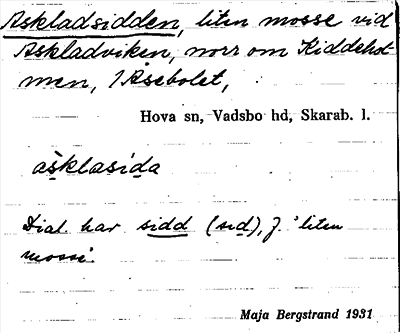 Askladsidden, liten mosse vid
Askladviken, norr om Kiddehol-
men, 1 Åsebolet,
Hova sn, Vadsbo hd, Skarab. l.
as̱klasiḏa
Dial. har sidd (sɩḏ), f. 'liten
mosse.
Maja Bergstrand 1931